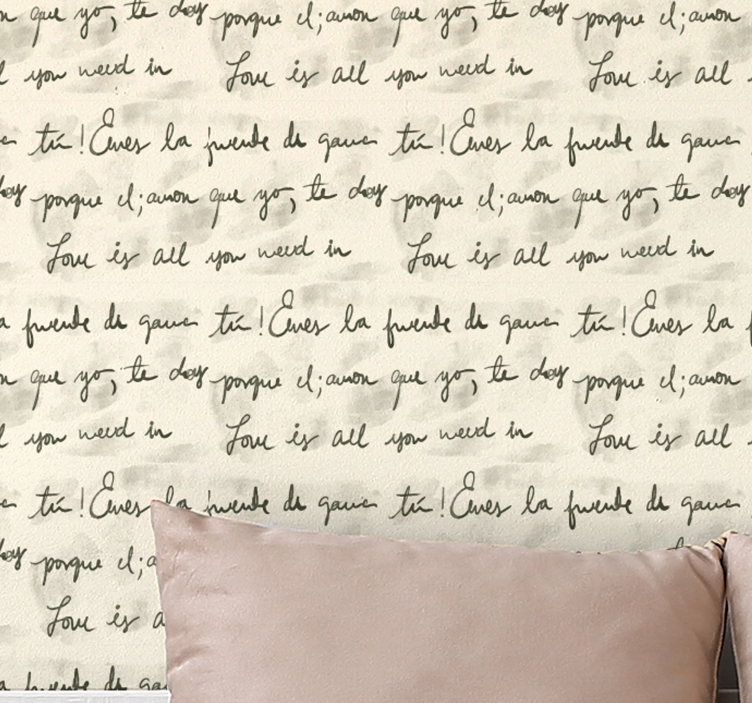 que yo, te doy porque el;amor que yo, te doy porque el;amor
you need in Love is all you need in Love is all
tú!Eres la fuente de tú!Eres la fuente de
doy porque el;amor que yo, te doy porque el;amor que yo, te doy
Love is all you need in Love is all you need in
fuente de tú!Eres la fuente de tú!Eres la
que yo, te doy porque el;amor que yo, te doy porque el;amor
you need in Love is all you need in Love is all
tú!Eres la fuente de tú!Eres la fuente de
porque el;
Love is
fuente de